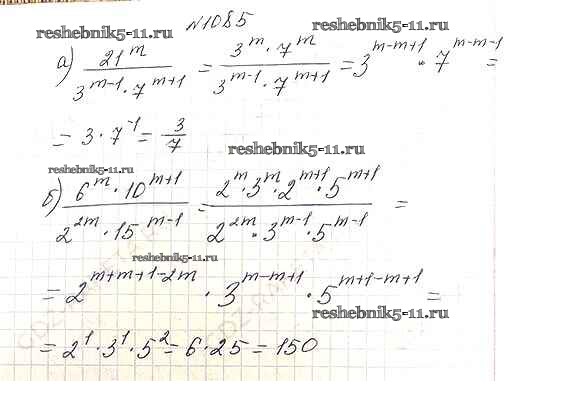 №1085
reshebnik5-11.ru
reshebnik5-11.ru
а) 21^m / (3^(m-1) · 7^(m+1)) = (3^m · 7^m) / (3^(m-1) · 7^(m+1)) = 3^(m-m+1) · 7^(m-m-1) =
= 3 · 7^(-1) = 3/7
reshebnik5-11.ru
reshebnik5-11.ru
б) (6^m · 10^(m+1)) / (2^(2m) · 15^(m-1)) = (2^m · 3^m · 2^(m+1) · 5^(m+1)) / (2^(2m) · 3^(m-1) · 5^(m-1)) =
reshebnik5-11.ru
= 2^(m+m+1-2m) · 3^(m-m+1) · 5^(m+1-m+1) =
reshebnik5-11.ru
= 2^1 · 3^1 · 5^2 = 6 · 25 = 150